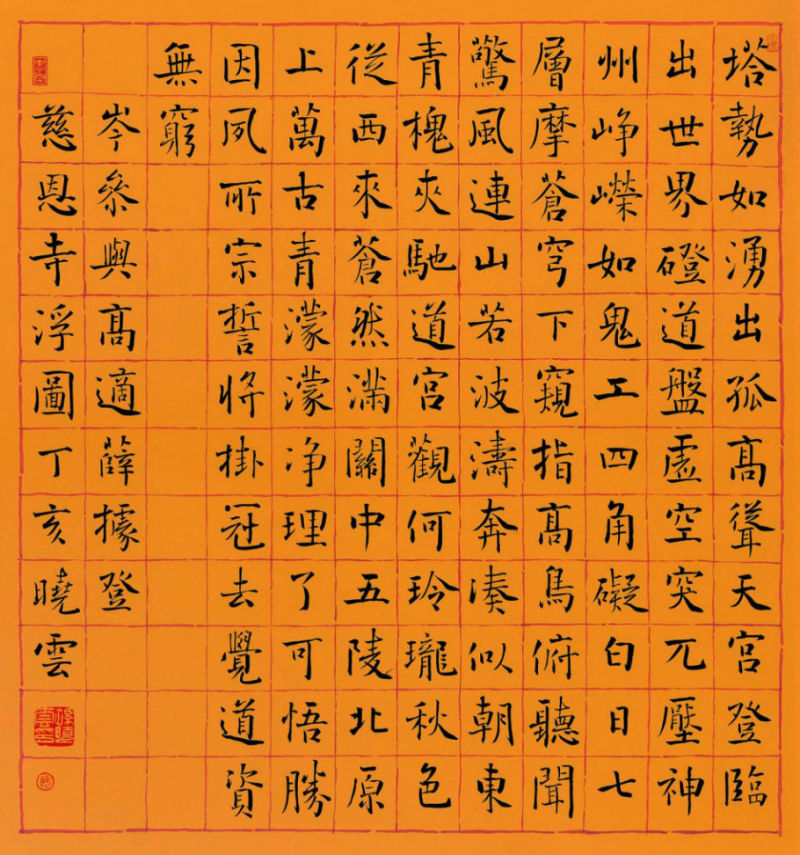 塔勢如湧出孤髙聳天宮登臨
出世界磴道盤虚空突兀壓神
州峥嶸如鬼工四角礙白日七
層摩蒼穹下窺指髙鳥俯聽聞
驚風連山若波濤奔湊似朝東
青槐夾馳道宮觀何玲瓏秋色
從西來蒼然滿關中五陵北原
上萬古青濛濛净理了可悟勝
因夙所宗誓将掛冠去覺道資
無窮
岑參與髙適薛據登
慈恩寺浮圖丁亥曉雲